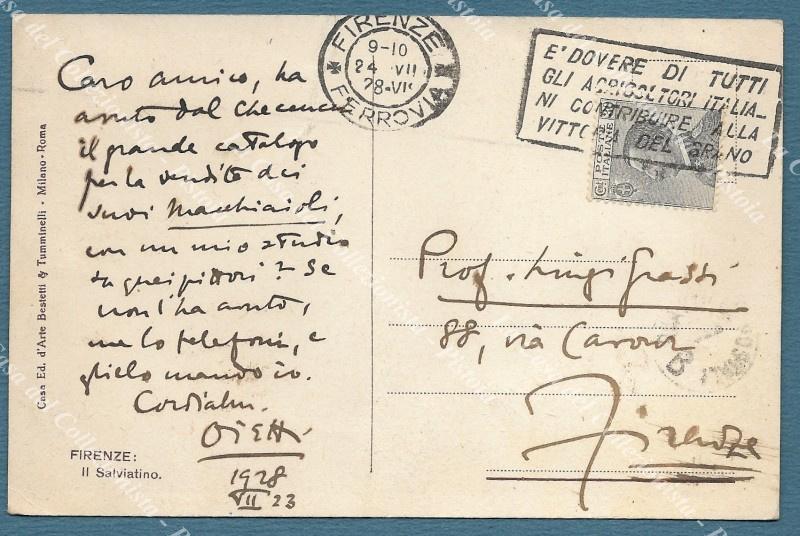 Caro amico, ha
avuto dal Checcucci
il grande catalogo
per la vendita dei
suoi Macchiaioli,
con un mio studio
su quei pittori? Se
non l'ha avuto,
me lo telefoni, e
glielo mando io.
Cordialm.
Ojetti
1928
VII 23
FIRENZE:
Il Salviatino.
Casa Ed. d'Arte Bestetti & Tumminelli · Milano · Roma
FIRENZE
9-10
24 VII
28-VI
FERROVIA
E' DOVERE DI TUTTI
GLI AGRICOLTORI ITALIA-
NI CONTRIBUIRE ALLA
VITTORIA DEL GRANO
POSTE
ITALIANE
Prof. Luigi Grassi
88, via Cavour
Firenze